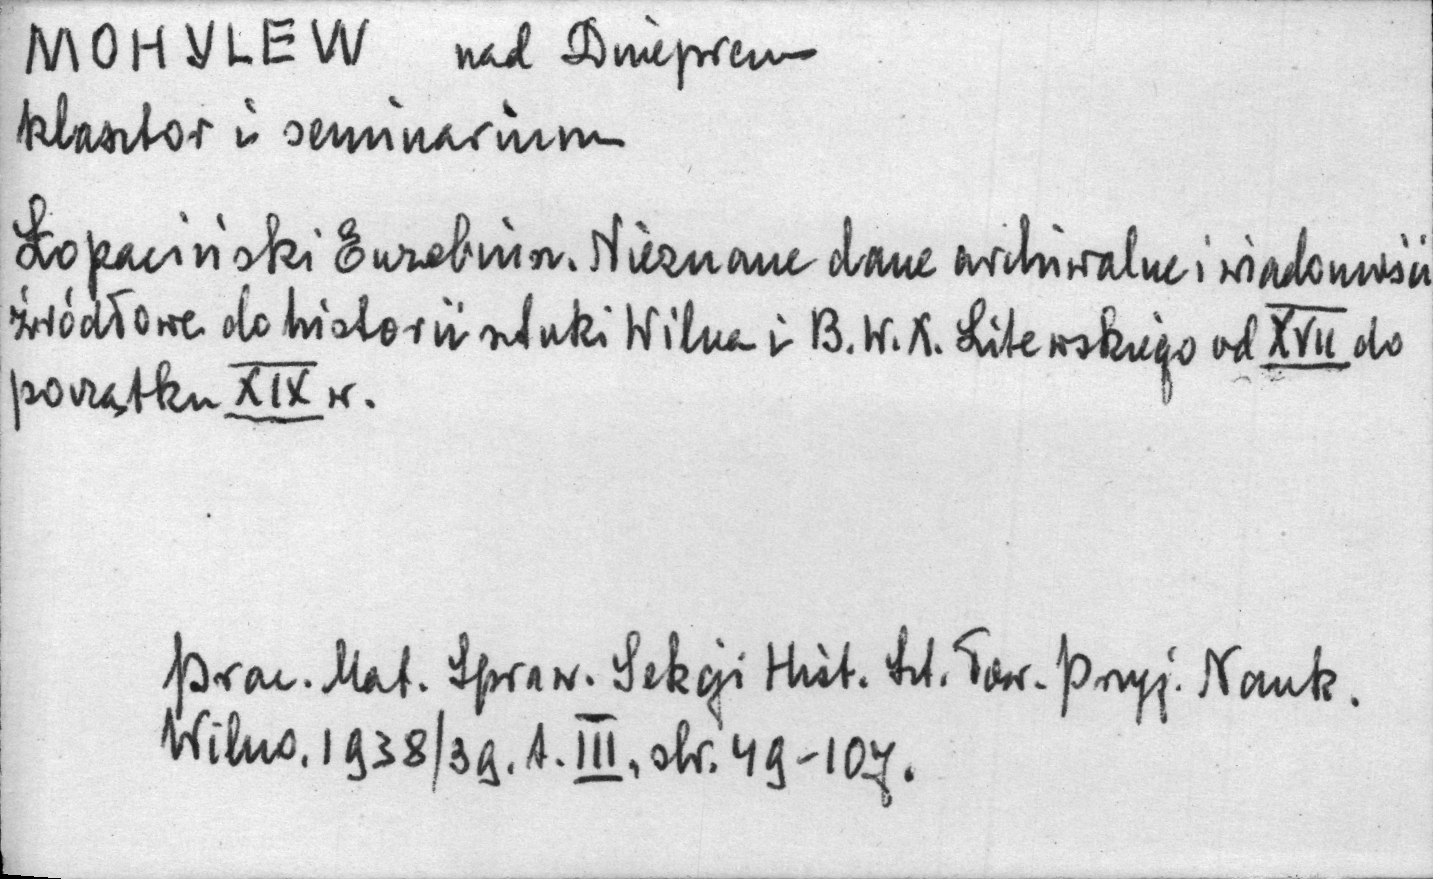 MOHYLEW nad Dnieprem
klasztor i seminarium
Łopaciński Euzebiusz. Nieznane dane archiwalne i wiadomości
źródłowe do historii sztuki Wilna i B. W. X. Litewskiego od XVII do
początku XIX w.
Prac. Mat. Spraw. Sekcji Hist. Szt. Tow. Przyj. Nauk.
Wilno. 1938/39. t. III, str. 49-107.